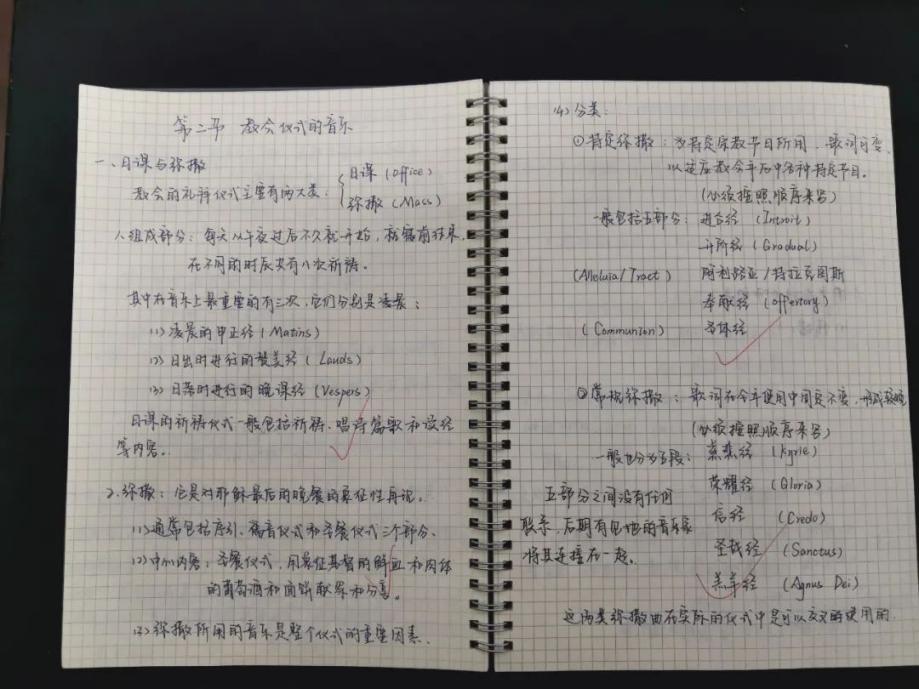 第二节 教会仪式的音乐
一、日课与弥撒
教会的礼拜仪式主要有两大类：
日课（Office）
弥撒（Mass）
1、组成部分：每天从午夜过后不久就开始，夜幕前结束，
在不同的时辰共有八次祈祷。
其中在音乐上最重要的有三次，它们分别是凌晨：
（1）凌晨的申正经（Matins）
（2）日出时进行的赞美经（Lauds）
（3）日落时进行的晚课经（Vespers）
日课的祈祷仪式一般包括祈祷、唱诗篇歌和读经
等内容。
2、弥撒：它是对耶稣最后的晚餐的象征性再现。
（1）通常包括序引、福音仪式和圣餐仪式三个部分。
（2）中心内容：圣餐仪式，用象征基督的鲜血和肉体
的葡萄酒和面饼献祭和分享。
（3）弥撒所用的音乐是整个仪式的重要因素。
（4）分类：
①特定弥撒：为特定宗教节日所用，歌词可变，
以适应教会年历中各种特定节目。
（必须按照顺序来写）
一般包括五部分：进台经（Introit）
升阶经（Gradual）
（Alleluia/Tract） 阿利路亚/特拉克图斯
奉献经（offertory）
（Communion） 圣体经
②常规弥撒：歌词在全年使用中固定不变，形成较晚
（必须按照顺序来写）
一般也分为五段：慈悲经（Kyrie）
荣耀经（Gloria）
信经（Credo）
圣哉经（Sanctus）
羔羊经（Agnus Dei）
五部分之间没有任何
联系，后期有的音乐家
将其连接在一起。
这两类弥撒曲在实际的仪式中是可以交叉的使用的.